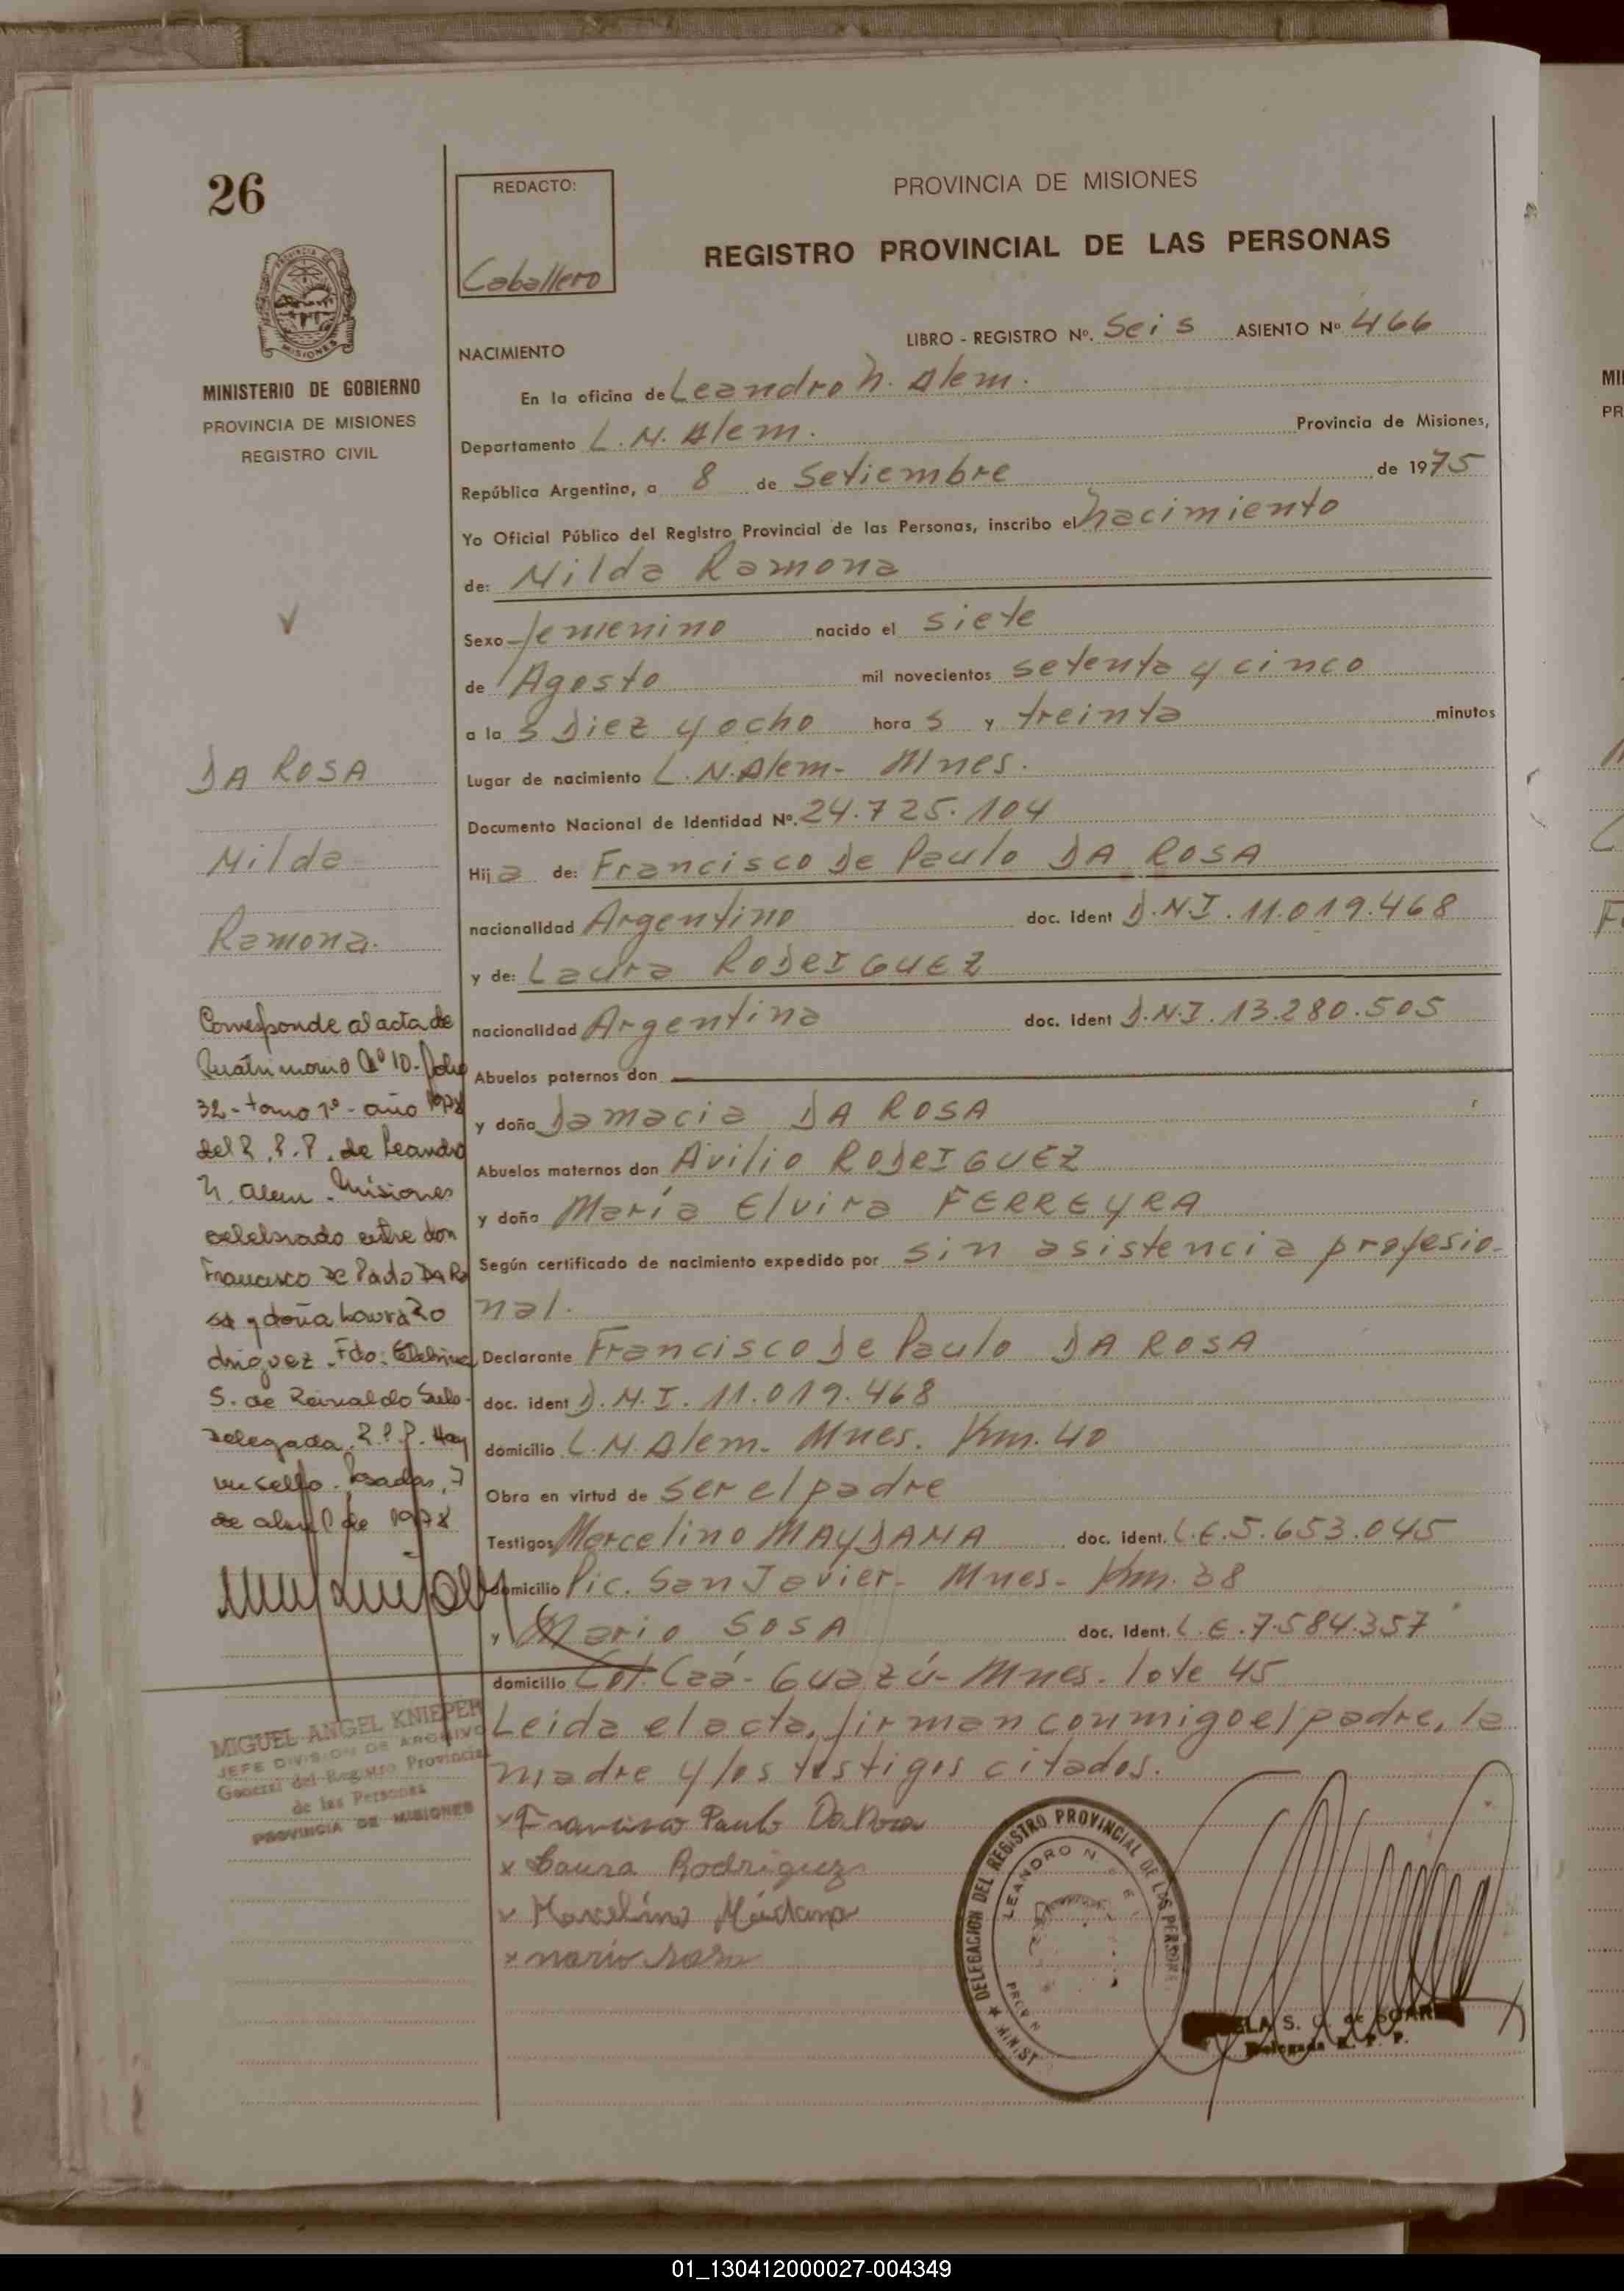 26
MINISTERIO DE GOBIERNO
PROVINCIA DE MISIONES
REGISTRO CIVIL
DA ROSA
Nilda
Ramona.
Corresponde al acta de
Matrimonio Nº 10 - folio
32 - tomo 1º - año 1978
del R.P.P. de Leandro
N. Alem - Misiones
celebrado entre don
Francisco De Paulo DA RO
SA y doña Laura Ro
driguez. Fdo:
S. de
Delegada R.P.P. Hay
un sello. Posadas, 7
de abril de 1978
MIGUEL ANGEL KNIEPER
JEFE DIVISION DE ARCHIVO
General del Registro Provincial
de las Personas
PROVINCIA DE MISIONES
REDACTO:
Caballero
PROVINCIA DE MISIONES
REGISTRO PROVINCIAL DE LAS PERSONAS
LIBRO - REGISTRO Nº. Seis ASIENTO Nº 466
NACIMIENTO
En la oficina de Leandro N. Alem.
Departamento L. N. Alem. Provincia de Misiones,
República Argentina, a 8 de Setiembre de 1975
Yo Oficial Público del Registro Provincial de las Personas, inscribo el nacimiento
de: Nilda Ramona
Sexo femenino nacido el siete
de Agosto mil novecientos setenta y cinco
a la s Diez y ocho hora s y treinta minutos
Lugar de nacimiento L. N. Alem - Mnes.
Documento Nacional de Identidad Nº. 24.725.104
Hij a de: Francisco De Paulo DA ROSA
nacionalidad Argentino doc. ident D.N.I. 11.019.468
y de: Laura RODRIGUEZ
nacionalidad Argentina doc. ident D.N.I. 13.280.505
Abuelos paternos don
y doña Damacia DA ROSA
Abuelos maternos don Avilio RODRIGUEZ
y doña María Elvira FERREYRA
Según certificado de nacimiento expedido por sin asistencia profesio-
nal.
Declarante Francisco De Paulo DA ROSA
doc. ident D.N.I. 11.019.468
domicilio L. N. Alem. Mnes. Km. 40
Obra en virtud de ser el padre
Testigos Marcelino MAYDANA doc. ident. L.E. 5.653.045
domicilio Pic. San Javier - Mnes - Km. 38
y Mario SOSA doc. Ident. L.E. 7.584.357
domicilio Col. Caá - Guazú - Mnes. lote 45
Leida el acta, firman conmigo el padre, la
madre y los testigos citados.
x Francisco Paulo Da Rosa
x Laura Rodriguez
x Marcelino Maidana
x mario sosa
DELEGACION DEL REGISTRO PROVINCIAL DE LAS PERSONAS
LEANDRO N.
MINIST
S. de
Delegada R. P. P.
01_130412000027-004349